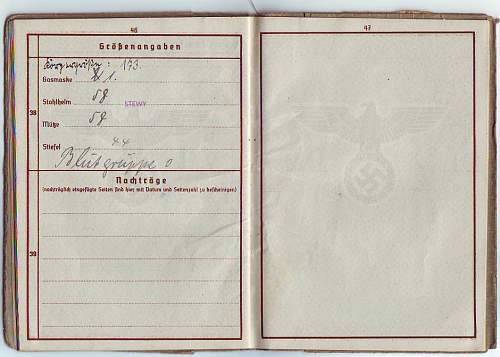 46
Größenangaben
Körpergröße: 173.
Gasmaske 1.
38
Stahlhelm 58 STEWY
Mütze 58
Stiefel 44
Blutgruppe 0
Nachträge
(nachträglich eingefügte Seiten sind hier mit Datum und Seitenzahl zu bescheinigen)
39
47